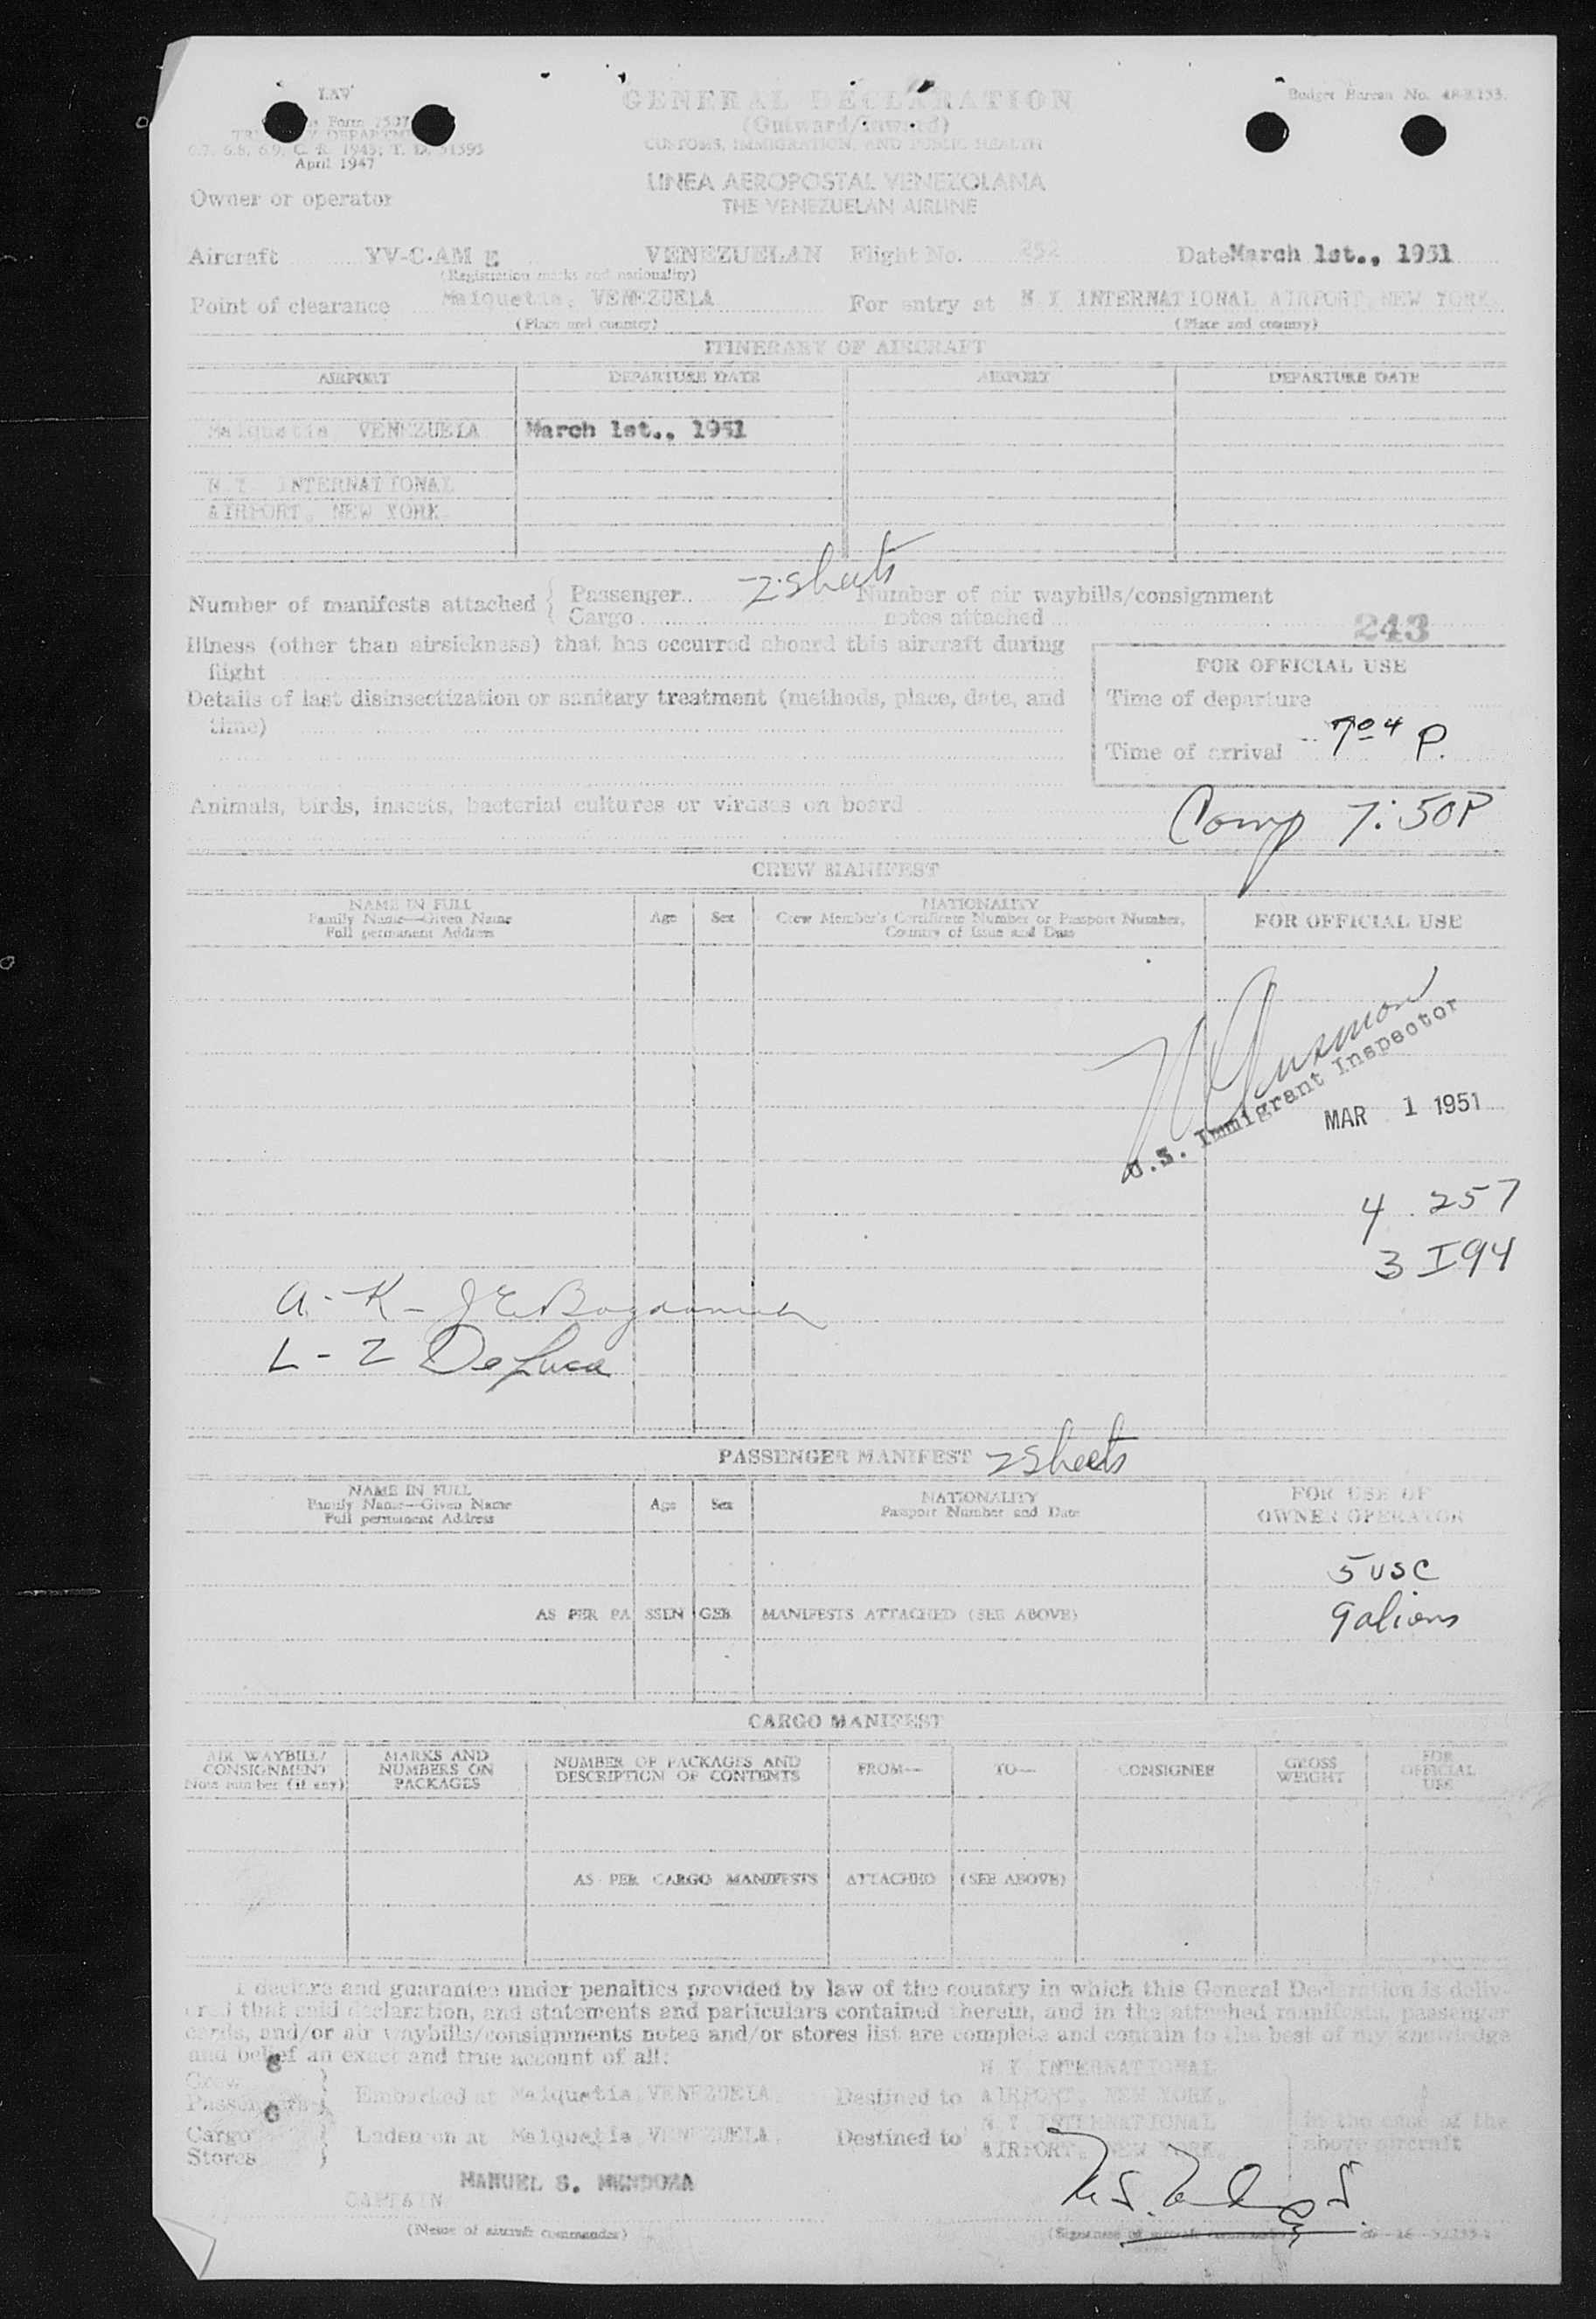 LAV
GENERAL DECLARATION
Budget Bureau No. 48-R133.
Form 7507
(Outward/Inward)
TREASURY DEPARTMENT
CUSTOMS, IMMIGRATION, AND PUBLIC HEALTH
6.7, 6.8, 6.9, C. R. 1943; T. D. 51595
April 1947
LINEA AEROPOSTAL VENEZOLANA
Owner or operator
THE VENEZUELAN AIRLINE
Aircraft YV-C-AM E VENEZUELAN Flight No. 252 Date March 1st., 1951
(Registration marks and nationality)
Point of clearance Maiquetia, VENEZUELA For entry at N Y INTERNATIONAL AIRPORT, NEW YORK
(Place and country) (Place and country)
ITINERARY OF AIRCRAFT
AIRPORT DEPARTURE DATE AIRPORT DEPARTURE DATE
Maiquetia VENEZUELA March 1st., 1951
N.Y. INTERNATIONAL
AIRPORT, NEW YORK.
Number of manifests attached { Passenger 2 sheets Number of air waybills/consignment
Cargo notes attached
243
Illness (other than airsickness) that has occurred aboard this aircraft during
flight
FOR OFFICIAL USE
Details of last disinsectization or sanitary treatment (methods, place, date, and
time)
Time of departure
Time of arrival 704 P.
Animals, birds, insects, bacterial cultures or viruses on board
Comp 7:50P
CREW MANIFEST
NAME IN FULL
Family Name—Given Name
Full permanent Address
Age Sex
NATIONALITY
Crew Member's Certificate Number or Passport Number,
Country of Issue and Date
FOR OFFICIAL USE
U.S. Immigrant Inspector
MAR 1 1951
4 257
3 I94
A - K - J E
L - Z DeLuca
PASSENGER MANIFEST 2 Sheets
NAME IN FULL
Family Name—Given Name
Full permanent Address
Age Sex
NATIONALITY
Passport Number and Date
FOR USE OF
OWNER OPERATOR
5 USC
AS PER PASSENGER MANIFESTS ATTACHED (SEE ABOVE)
9 aliens
CARGO MANIFEST
AIR WAYBILL/
CONSIGNMENT
Note number (if any)
MARKS AND
NUMBERS ON
PACKAGES
NUMBER OF PACKAGES AND
DESCRIPTION OF CONTENTS
FROM—
TO—
CONSIGNEE
GROSS
WEIGHT
FOR
OFFICIAL
USE
AS PER CARGO MANIFESTS ATTACHED (SEE ABOVE)
I declare and guarantee under penalties provided by law of the country in which this General Declaration is deliv-
ered that said declaration, and statements and particulars contained therein, and in the attached manifests, passenger
cards, and/or air waybills/consignments notes and/or stores list are complete and contain to the best of my knowledge
and belief an exact and true account of all:
Crew 8
Passengers
Embarked at Maiquetia VENEZUELA. Destined to N Y INTERNATIONAL
AIRPORT, NEW YORK.
Cargo
Stores
Laden on at Maiquetia VENEZUELA. Destined to N Y INTERNATIONAL
AIRPORT, NEW YORK.
in the case of the
above aircraft
CAPTAIN MANUEL S. MENDOZA
(Name of aircraft commander) (Signature of aircraft commander)